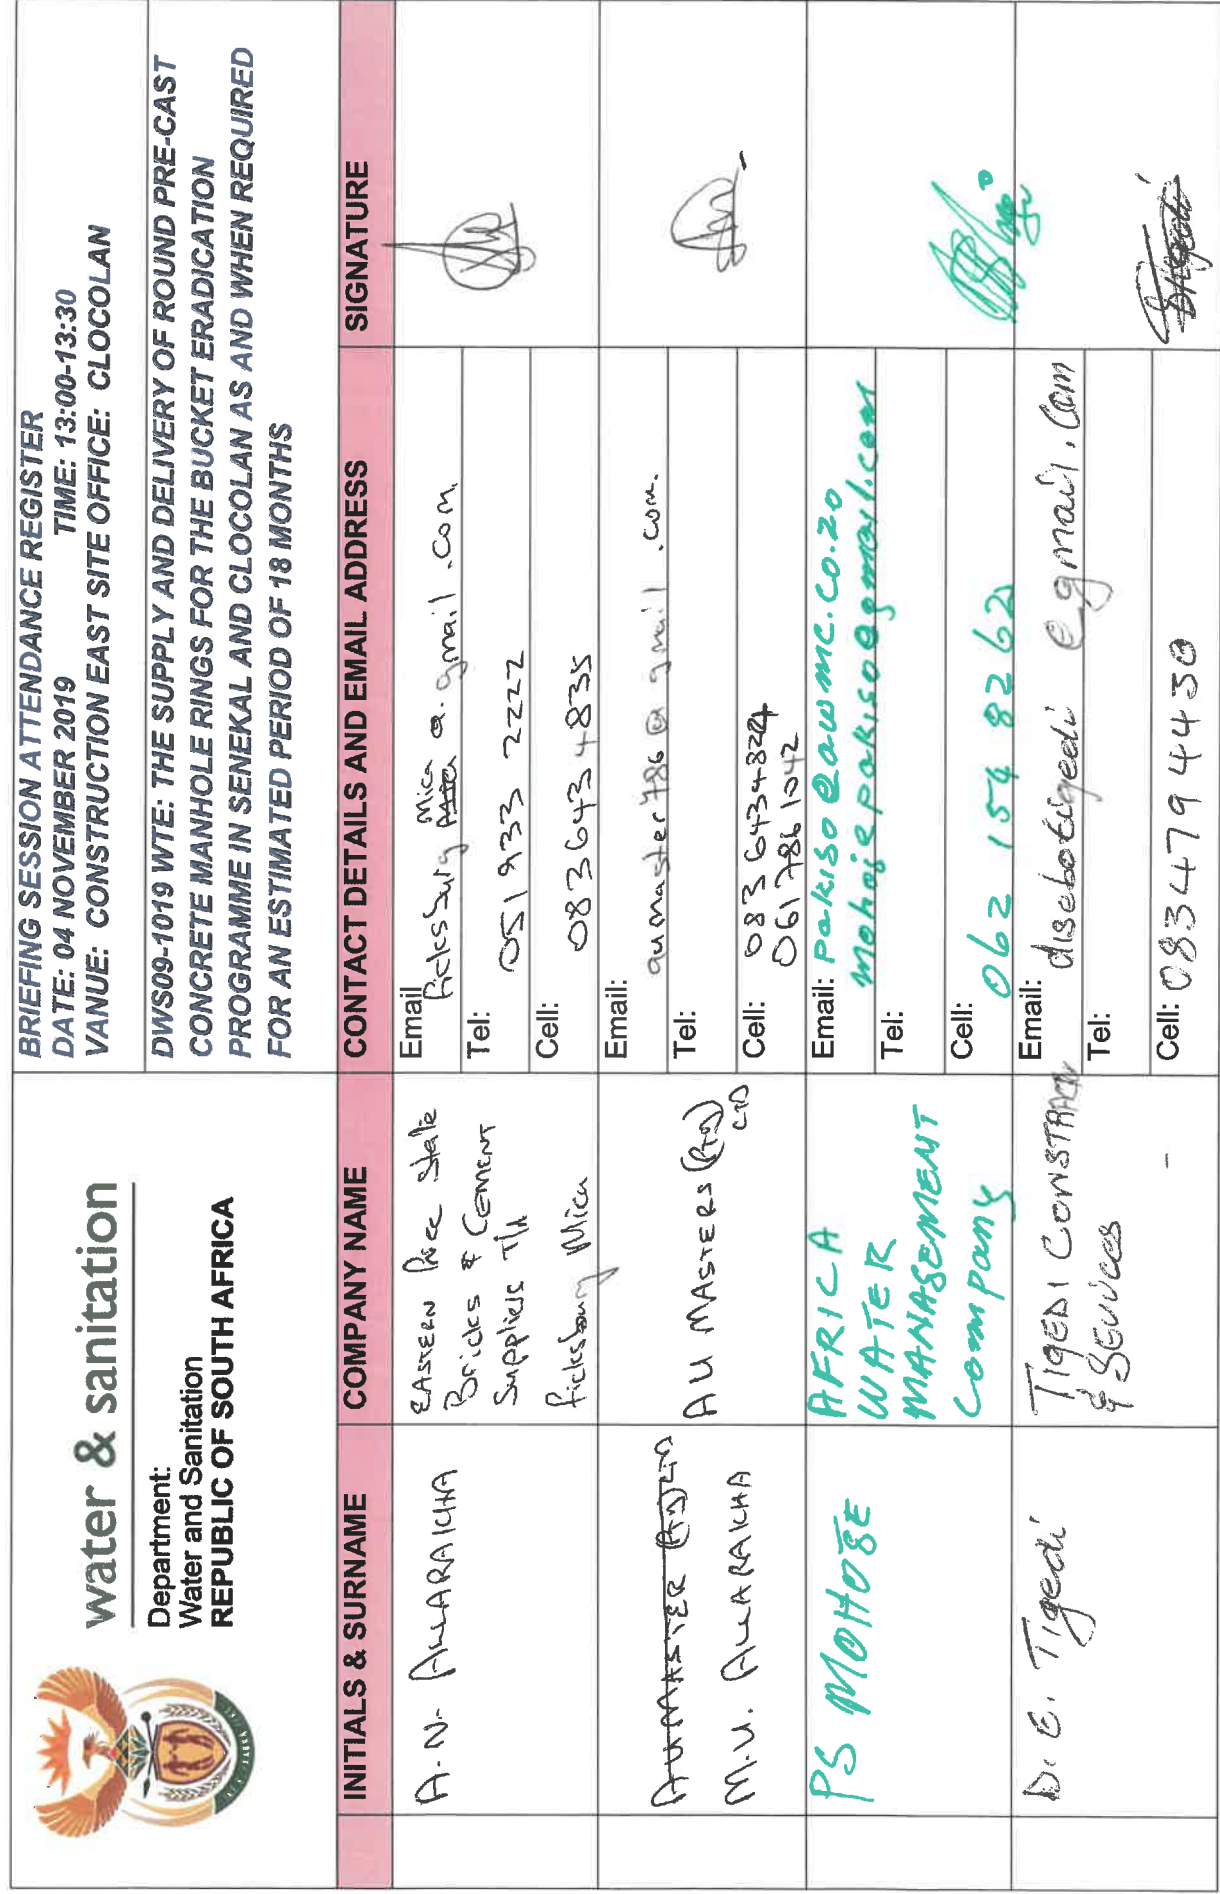 water & sanitation
Department:
Water and Sanitation
REPUBLIC OF SOUTH AFRICA
BRIEFING SESSION ATTENDANCE REGISTER
DATE: 04 NOVEMBER 2019 TIME: 13:00-13:30
VANUE: CONSTRUCTION EAST SITE OFFICE: CLOCOLAN
DWS09-1019 WTE: THE SUPPLY AND DELIVERY OF ROUND PRE-CAST
CONCRETE MANHOLE RINGS FOR THE BUCKET ERADICATION
PROGRAMME IN SENEKAL AND CLOCOLAN AS AND WHEN REQUIRED
FOR AN ESTIMATED PERIOD OF 18 MONTHS
INITIALS & SURNAME COMPANY NAME CONTACT DETAILS AND EMAIL ADDRESS SIGNATURE
A.N. ALLARAKHA
EASTERN Free State
Bricks & CEMENT
Suppliers T/A
ficksburg Mica
Email ficksburg Mica @.gmail.com.
Tel: 051 933 2222
Cell: 083 643 4835
AUMASTER (PTY) LTD
M.U. ALLARAKHA
AU MASTERS (PTY)
LTD
Email: aumaster786@gmail.com.
Tel:
Cell: 083 6434824
061 786 1042
PS MOHOJE
AFRICA
WATER
MANAGEMENT
Company
Email: Pakiso@awmc.co.za
mohojepakiso@gmail.com
Tel:
Cell: 062 154 8262
D.E. Tigedi
TIGEDI CONSTRAC
& Seuvices
Email: disebotigedi@gmail.com
Tel:
Cell: 083 479 4430